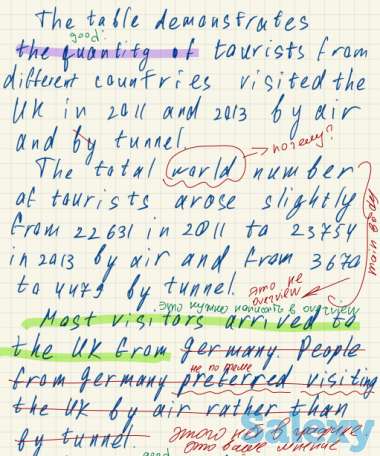 The table demonstrates
good
the quantity of tourists from
different countries visited the
UK in 2011 and 2013 by air
and by tunnel.
The total world number
почему?
of tourists arose slightly
from 22631 in 2011 to 23754
in 2013 by air and from 3670
to 4479 by tunnel.
это не
overview
это нужно написать в overview
Most visitors arrived to
the UK from germany. People
не по теме
from germany preferred visiting
the UK by air rather than
by tunnel.
этого нет в графике.
это ваше мнение
good